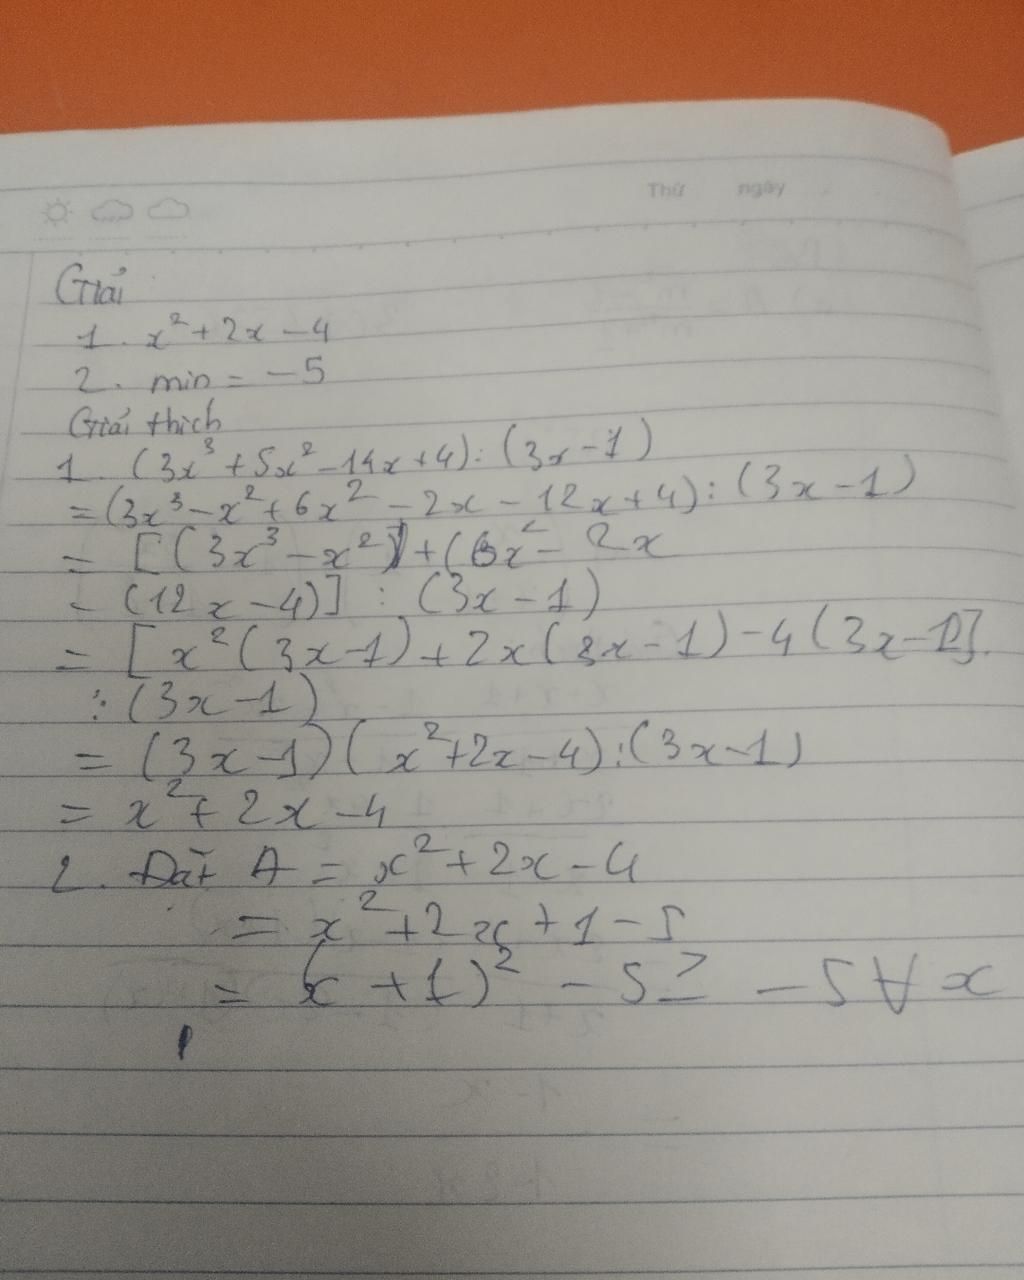 Thứ ngày
Giải
1. x² + 2x - 4
2. min = -5
Giải thích
1. (3x³ + 5x² - 14x + 4) : (3x - 1)
= (3x³ - x² + 6x² - 2x - 12x + 4) : (3x - 1)
= [(3x³ - x²) + (6x² - 2x
- (12x - 4)] : (3x - 1)
= [x²(3x - 1) + 2x(3x - 1) - 4(3x - 1)]
: (3x - 1)
= (3x - 1)(x² + 2x - 4) : (3x - 1)
= x² + 2x - 4
2. Đặt A = x² + 2x - 4
= x² + 2x + 1 - 5
= (x + 1)² - 5 ≥ -5 ∀ x